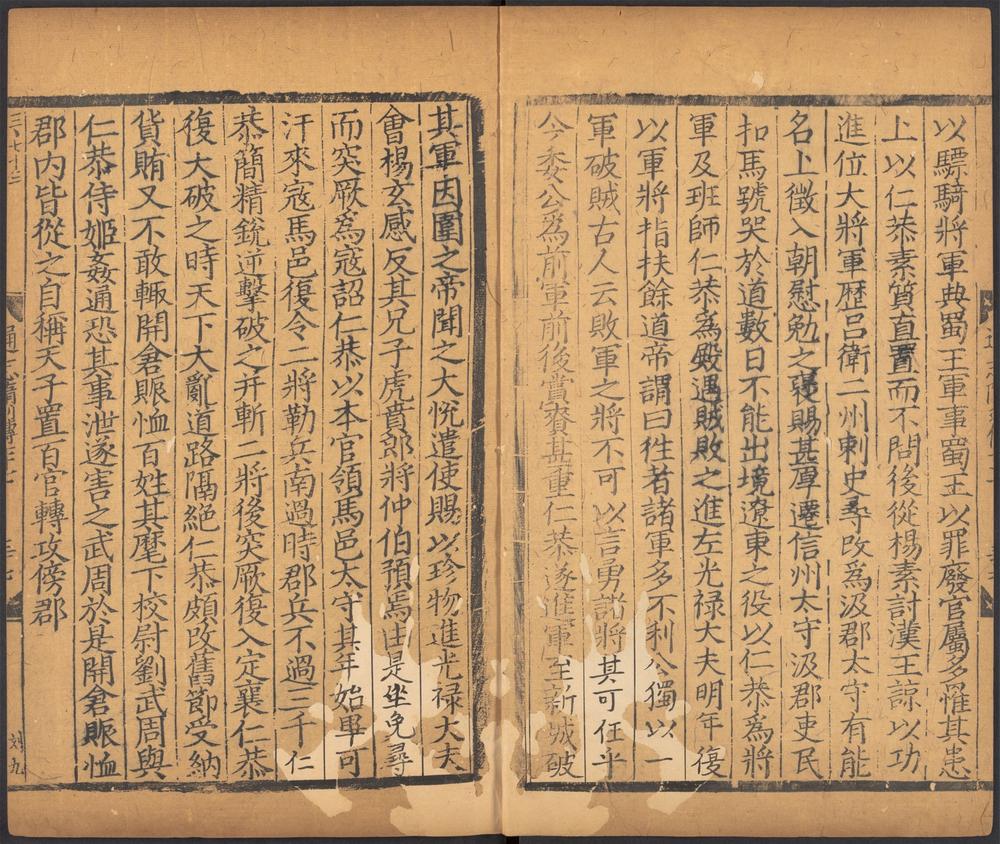 以驃騎將軍典蜀王軍事蜀王以罪廢官屬多罹其患
上以仁恭素質直置而不問後從楊素討漢王諒以功
進位大將軍歷呂衛二州刺史尋改為汲郡太守有能
名上徵入朝慰勉之襃賜甚厚遷信州太守汲郡吏民
扣馬號哭於道數日不能出境遼東之役以仁恭為將
軍及班師仁恭為殿遇賊敗之進左光祿大夫明年復
以軍將指扶餘道帝謂曰往者諸軍多不利公獨以一
軍破賊古人云敗軍之將不可以言勇諸將其可任乎
今委公為前軍前後賞賚甚重仁恭遂進軍至新城破
其軍因圍之帝聞之大恱遣使賜以珍物進光祿大夫
會楊玄感反其兄子虎賁郎將仲伯預焉由是坐免尋
而突厥為寇詔仁恭以本官領馬邑太守其年始畢可
汗來寇馬邑復令二將勒兵南過時郡兵不過三千仁
恭簡精銳逆擊破之幷斬二將後突厥復入定襄仁恭
復大破之時天下大亂道路隔絕仁恭頗改舊節受納
貨賄又不敢輒開倉賑恤百姓其麾下校尉劉武周與
仁恭侍姬姦通恐其事泄遂害之武周於是開倉賑恤
郡內皆從之自稱天子置百官轉攻傍郡